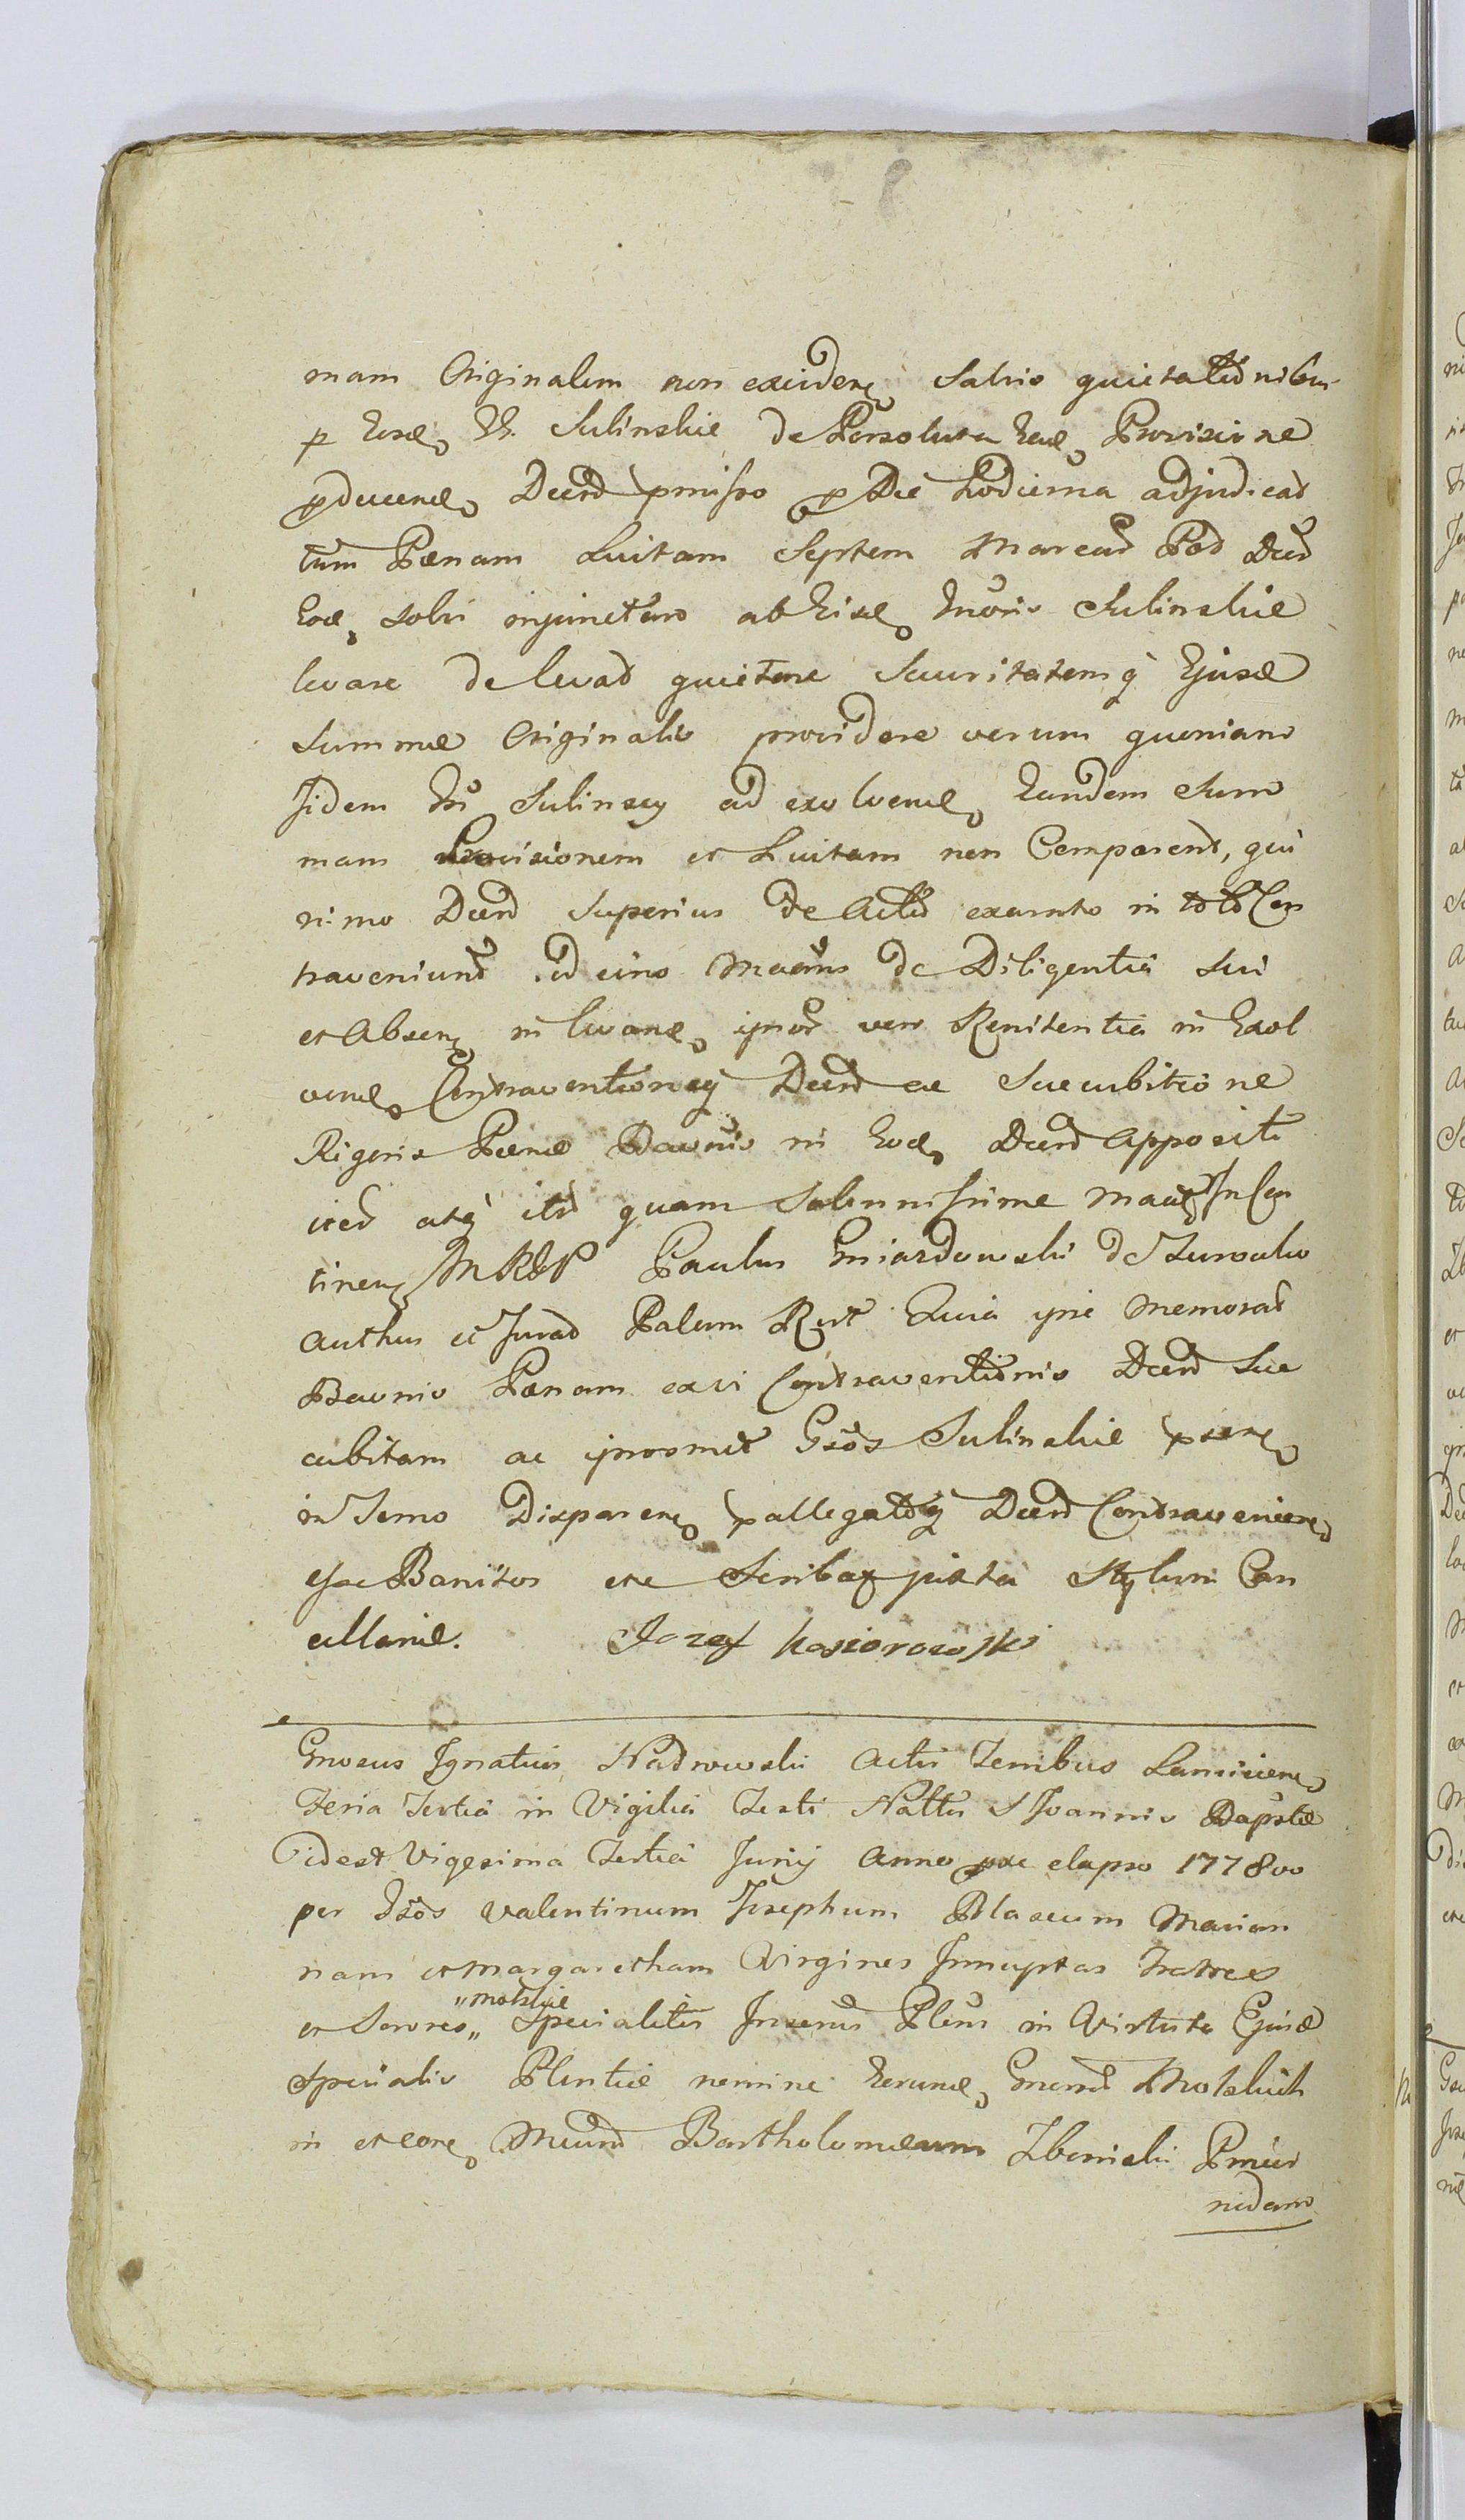 mam Originalem non excidere Salvis quietationibus
p Eosd G. Sulinskie de Persoluta Ead Provisione
pducend Decrd pmisso p Die hodierna adjudicat
tum Pœnam Luitam Septem Marcad Pad Decr
Eod solvi injunctam ab Eisd Grosis Sulinskie
levare de levad quietare Securitatemq Ejusd
Summæ Originalis providere verum quoniam
Iidem Gsi Sulinscy ad exolvend Eandem Sum
mam Provisionem et Luitam non Comparent, qui
nimo Decrd Superius de Actu exarato in toto Con
traveniunt ideirco de Diligentia Sui
et Absen in levand ipsor vero Renitentia in Exol
vend Contraventioneq Decrd ac Succubitione
Rigoris Pœnæ Bannis in Eod Decrd Appositi
ited atq itd quam Solennissime In Con
tinen MRSP Paulus Gniazdowski de Zuroclu
authus et Jurad Palam Rect Quia ipse Memorat
Bannis Pœnam ex vi Contraventionis Decrd Suc
cubitam ac ipsosmet Gsos Sulinskie psen
in Termo Disparen pallegatoq Decrd Contravenien
esse Banitos etc Scribat juxta Stylum Can
cellariæ. Jozef Kosiorowski
Gnosus Ignatius Nadrowski Actis Terribus Lamsicien
Feria Tertia in Vigilia Festi Nattis S Joannis Baptæ
idest Vigesima Tertia Junij Anno elapso 1778vo
per Gsos Valentinum Josephum Blaseum Marian
nam et Margaretham Virgines Innuptas Fratres
et Sorores „Motskie„ Specialiter Inseris Plens in Virtute Ejusd
Specialis Plentiæ nomine Eorund Gnerosor Motskich
in et cone Mcum Bartholomæum Zbonski Pmiss
nidam